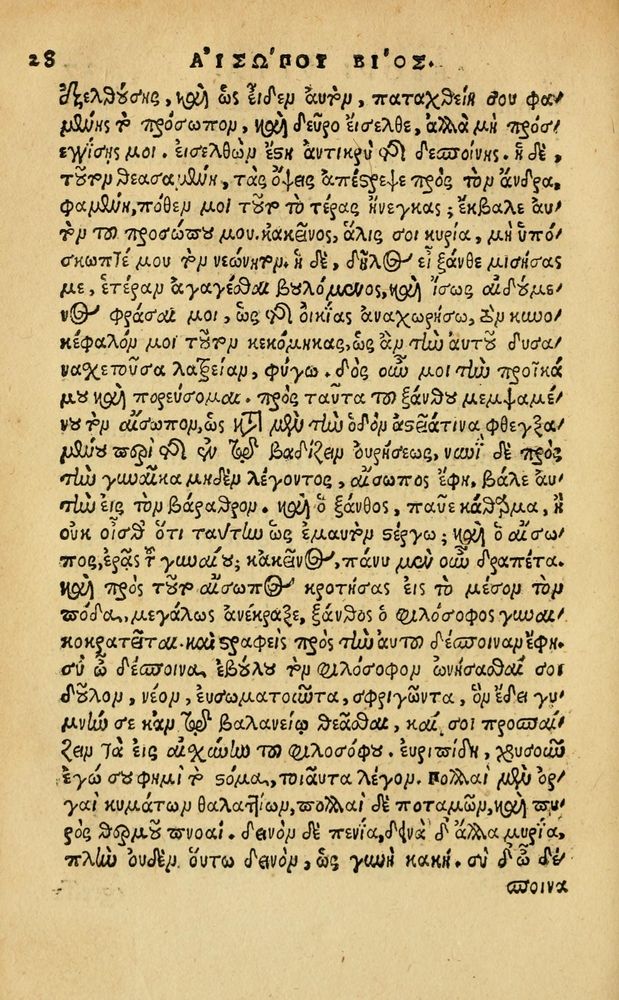 28 ΑἸΣΩ΄ΠΟΥ ΒΙ΄ΟΣ.
ἐξελθούσης, καὶ ὡς εἶδεν αὐτὴν, παταχθεῖσά σου φα-
μένης τὸ πρόσωπον, καὶ δεῦρο εἴσελθε, ἀλλὰ μὴ πρόσ-
εγγίσῃς μοι. εἰσελθὼν ἔστη ἀντικρὺ τῆς δεσποίνης. ἡ δὲ,
τοῦτον θεασαμένη, τὰς ὄψεις ἀπέστρεψε πρὸς τὸν ἄνδρα,
φαμένη, πόθεν μοι τοῦτο τὸ τέρας ἤνεγκας; ἔκβαλε αὐ-
τὸν τοῦ προσώπου μου. κἀκεῖνος, ἅλις σοι κυρία, μὴ ὑπό-
σκωπτέ μου τὸν νεώνητον. ἡ δὲ, δῆλος εἶ ξάνθε μισήσας
με, ἑτέραν ἀγαγέσθαι βουλόμενος, καὶ ἴσως αἰδούμε-
νος φράσαι μοι, ὡς τῆς οἰκίας ἀναχωρήσω, τὸν κυνο-
κέφαλόν μοι τοῦτον κεκόμηκας, ὡς ἂν τὴν αὐτοῦ δυσα-
νασχετοῦσα λατρείαν, φύγω. δὸς οὖν μοι τὴν προῖκά
μου καὶ πορεύσομαι. πρὸς ταῦτα τοῦ ξάνθου μεμψαμέ-
νου τὸν αἴσωπον, ὡς κατὰ μὲν τὴν ὁδὸν ἀστεῖάτινα φθεγξα-
μένου περὶ τῆς ἐν τῷ βαδίζειν οὐρήσεως, νυνὶ δὲ πρὸς
τὴν γυναῖκα μηδὲν λέγοντος, αἴσωπος ἔφη, βάλε αὐ-
τὴν εἰς τὸν βάραθρον. καὶ ὁ ξάνθος, παῦε κάθαρμα, ἢ
οὐκ οἶσθ' ὅτι ταύτην ὡς ἐμαυτὸν στέργω; καὶ ὁ αἴσω-
πος, ἐρᾷς τῆς γυναίου; κἀκεῖνος, πάνυ μὲν οὖν δραπέτα.
καὶ πρὸς τοῦτο αἴσωπος κροτήσας εἰς τὸ μέσον τὸν
πόδα, μεγάλως ἀνέκραξε, ξάνθος ὁ φιλόσοφος γυναι-
κοκρατεῖται. καὶ στραφεὶς πρὸς τὴν αὐτοῦ δέσποιναν ἔφη.
σὺ ὦ δέσποινα, ἐβούλου τὸν φιλόσοφον ὠνήσασθαί σοι
δοῦλον, νέον, εὐσωματοῦντα, σφριγῶντα, ὃν ἔδει γυ-
μνήν σε κἀν τῷ βαλανείῳ θεᾶσθαι, καί σοι προσπαί-
ζειν τὰ εἰς αἰσχύνην τοῦ φιλοσόφου. εὐριπίδη, χρυσοῦν
ἐγώ σου φημὶ τὸ στόμα, τοιαῦτα λέγον. Πολλαὶ μὲν ὀρ-
γαὶ κυμάτων θαλαττίων, πολλαὶ δὲ ποταμῶν, καὶ πυ-
ρὸς θερμοῦ πνοαί. δεινὸν δὲ πενία, δεινὰ δ' ἄλλα μυρία,
πλὴν οὐδὲν οὕτω δεινὸν, ὡς γυνὴ κακή. σὺ δ' ὦ δέ-
σποινα